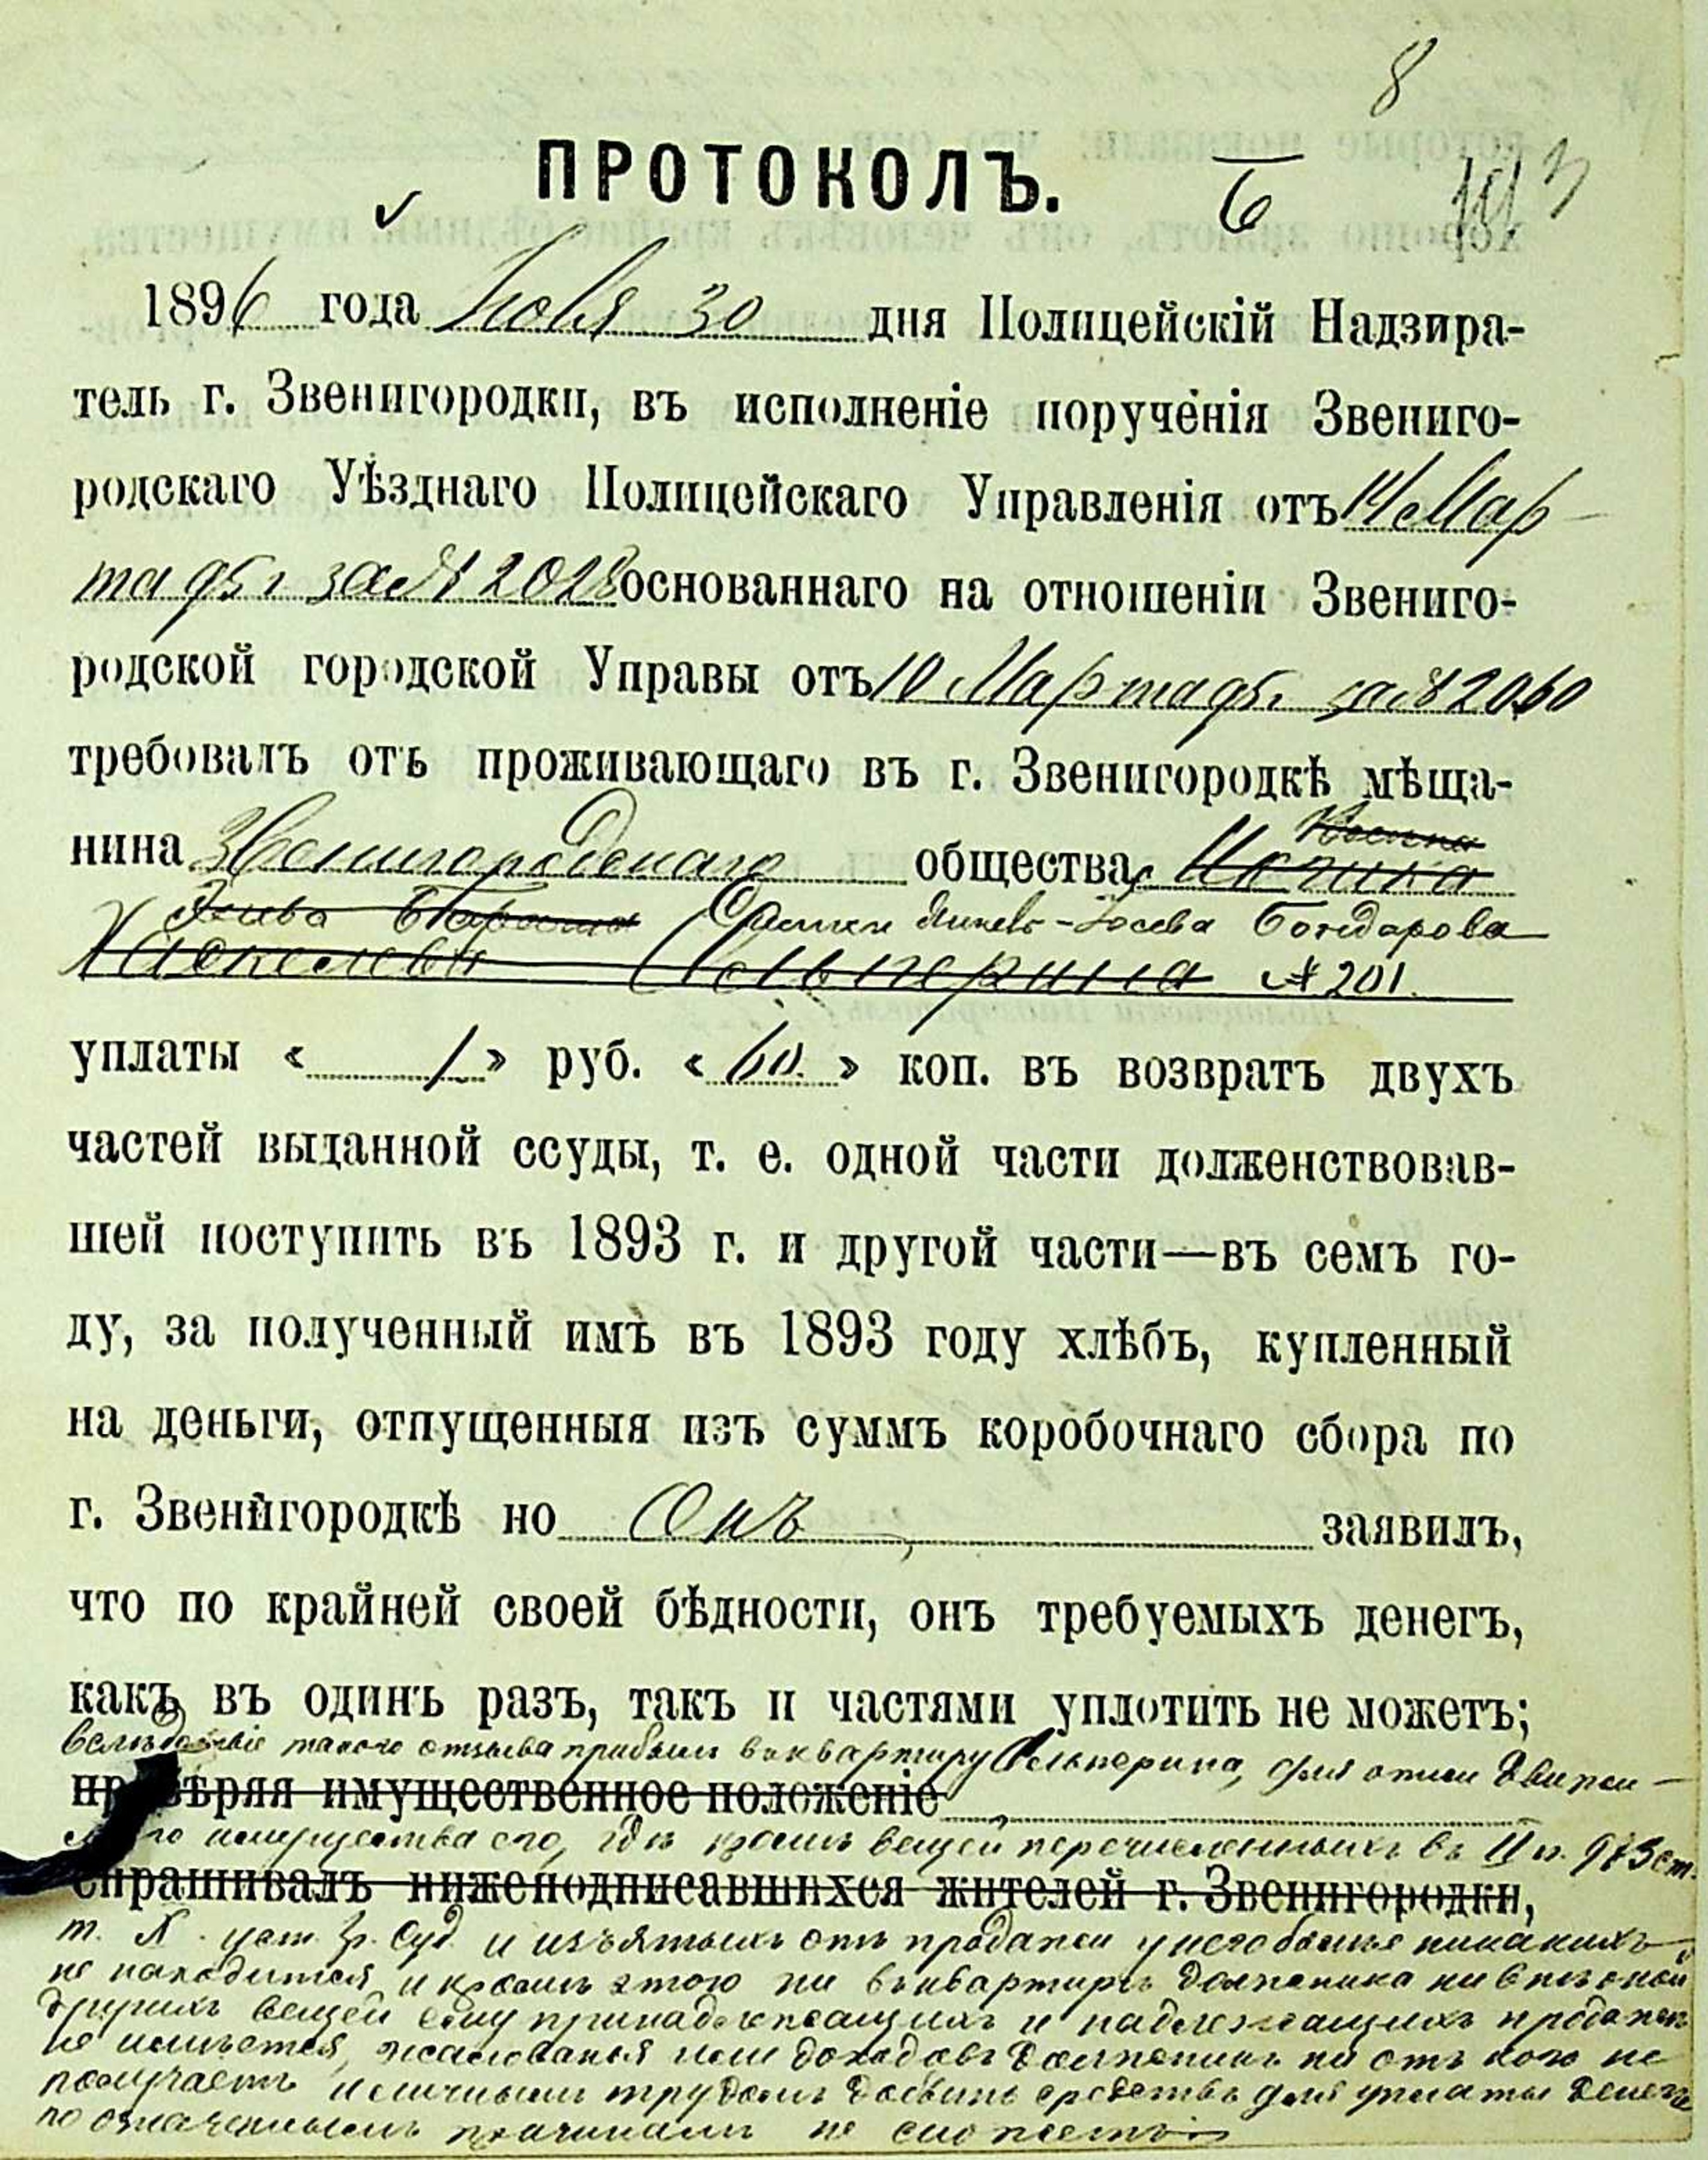 8
ПРОТОКОЛЪ.
6
1896 года Июля 30 дня Полицейскій Надзира-
тель г. Звенигородки, въ исполненіе порученія Звениго-
родскаго Уѣзднаго Полицейскаго Управленія отъ 14 Мар-
та 95 г за № 2028 основаннаго на отношеніи Звениго-
родской городской Управы отъ 10 Марта 95 г за № 2060
требовалъ отъ проживающаго въ г. Звенигородкѣ мѣща-
нина Звенигородскаго общества Ицика
Бондарова
Хаскелева Гольперина № 201
уплаты « 1 » руб. « 60 » коп. въ возвратъ двухъ
частей выданной ссуды, т. е. одной части долженствовав-
шей поступить въ 1893 г. и другой части—въ семъ го-
ду, за полученный имъ въ 1893 году хлѣбъ, купленный
на деньги, отпущенныя изъ суммъ коробочнаго сбора по
г. Звенигородкѣ но Онъ заявилъ,
что по крайней своей бѣдности, онъ требуемыхъ денегъ,
какъ въ одинъ разъ, такъ и частями уплотить не можетъ;
вслѣдствіе такого отзыва прибылъ въ квартиру Гольперина, для описи движи-
провѣряя имущественное положеніе
мого имущества его, гдѣ кромѣ вещей перечисленныхъ въ II п. 973 ст.
спрашивалъ нижеподписавшихся жителей г. Звенигородки,
т. X уст. гр. суд. и изъятыхъ отъ продажи у него больше никакихъ
не находится и кромѣ этого ни въ квартирѣ должника ни въ
другихъ вещей ему принадлежащихъ и надлежащихъ продажѣ
не имѣется, жалованья или доходовъ должникъ ни отъ кого не
получаетъ и личнымъ трудомъ добыть средствъ для уплаты денегъ
по означеннымъ причинамъ не можетъ